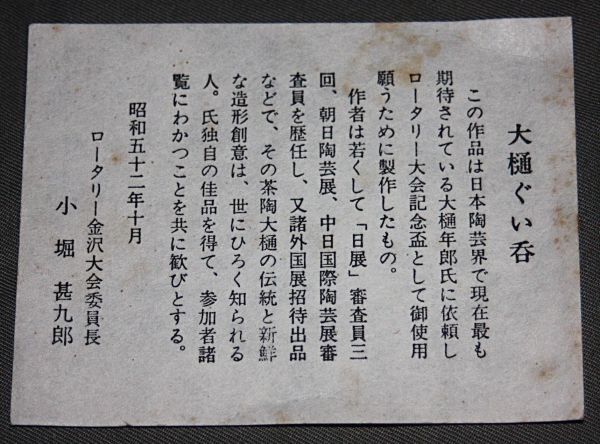 大樋ぐい呑
この作品は日本陶芸界で現在最も
期待されている大樋年郎氏に依頼し
ロータリー大会記念盃として御使用
願うために製作したもの。
作者は若くして「日展」審査員三
回、朝日陶芸展、中日国際陶芸展審
査員を歴任し、又諸外国展招待出品
などで、その茶陶大樋の伝統と新鮮
な造形創意は、世にひろく知られる
人。氏独自の佳品を得て、参加者諸
覧にわかつことを共に歓びとする。
昭和五十二年十月
ロータリー金沢大会委員長
小堀甚九郎